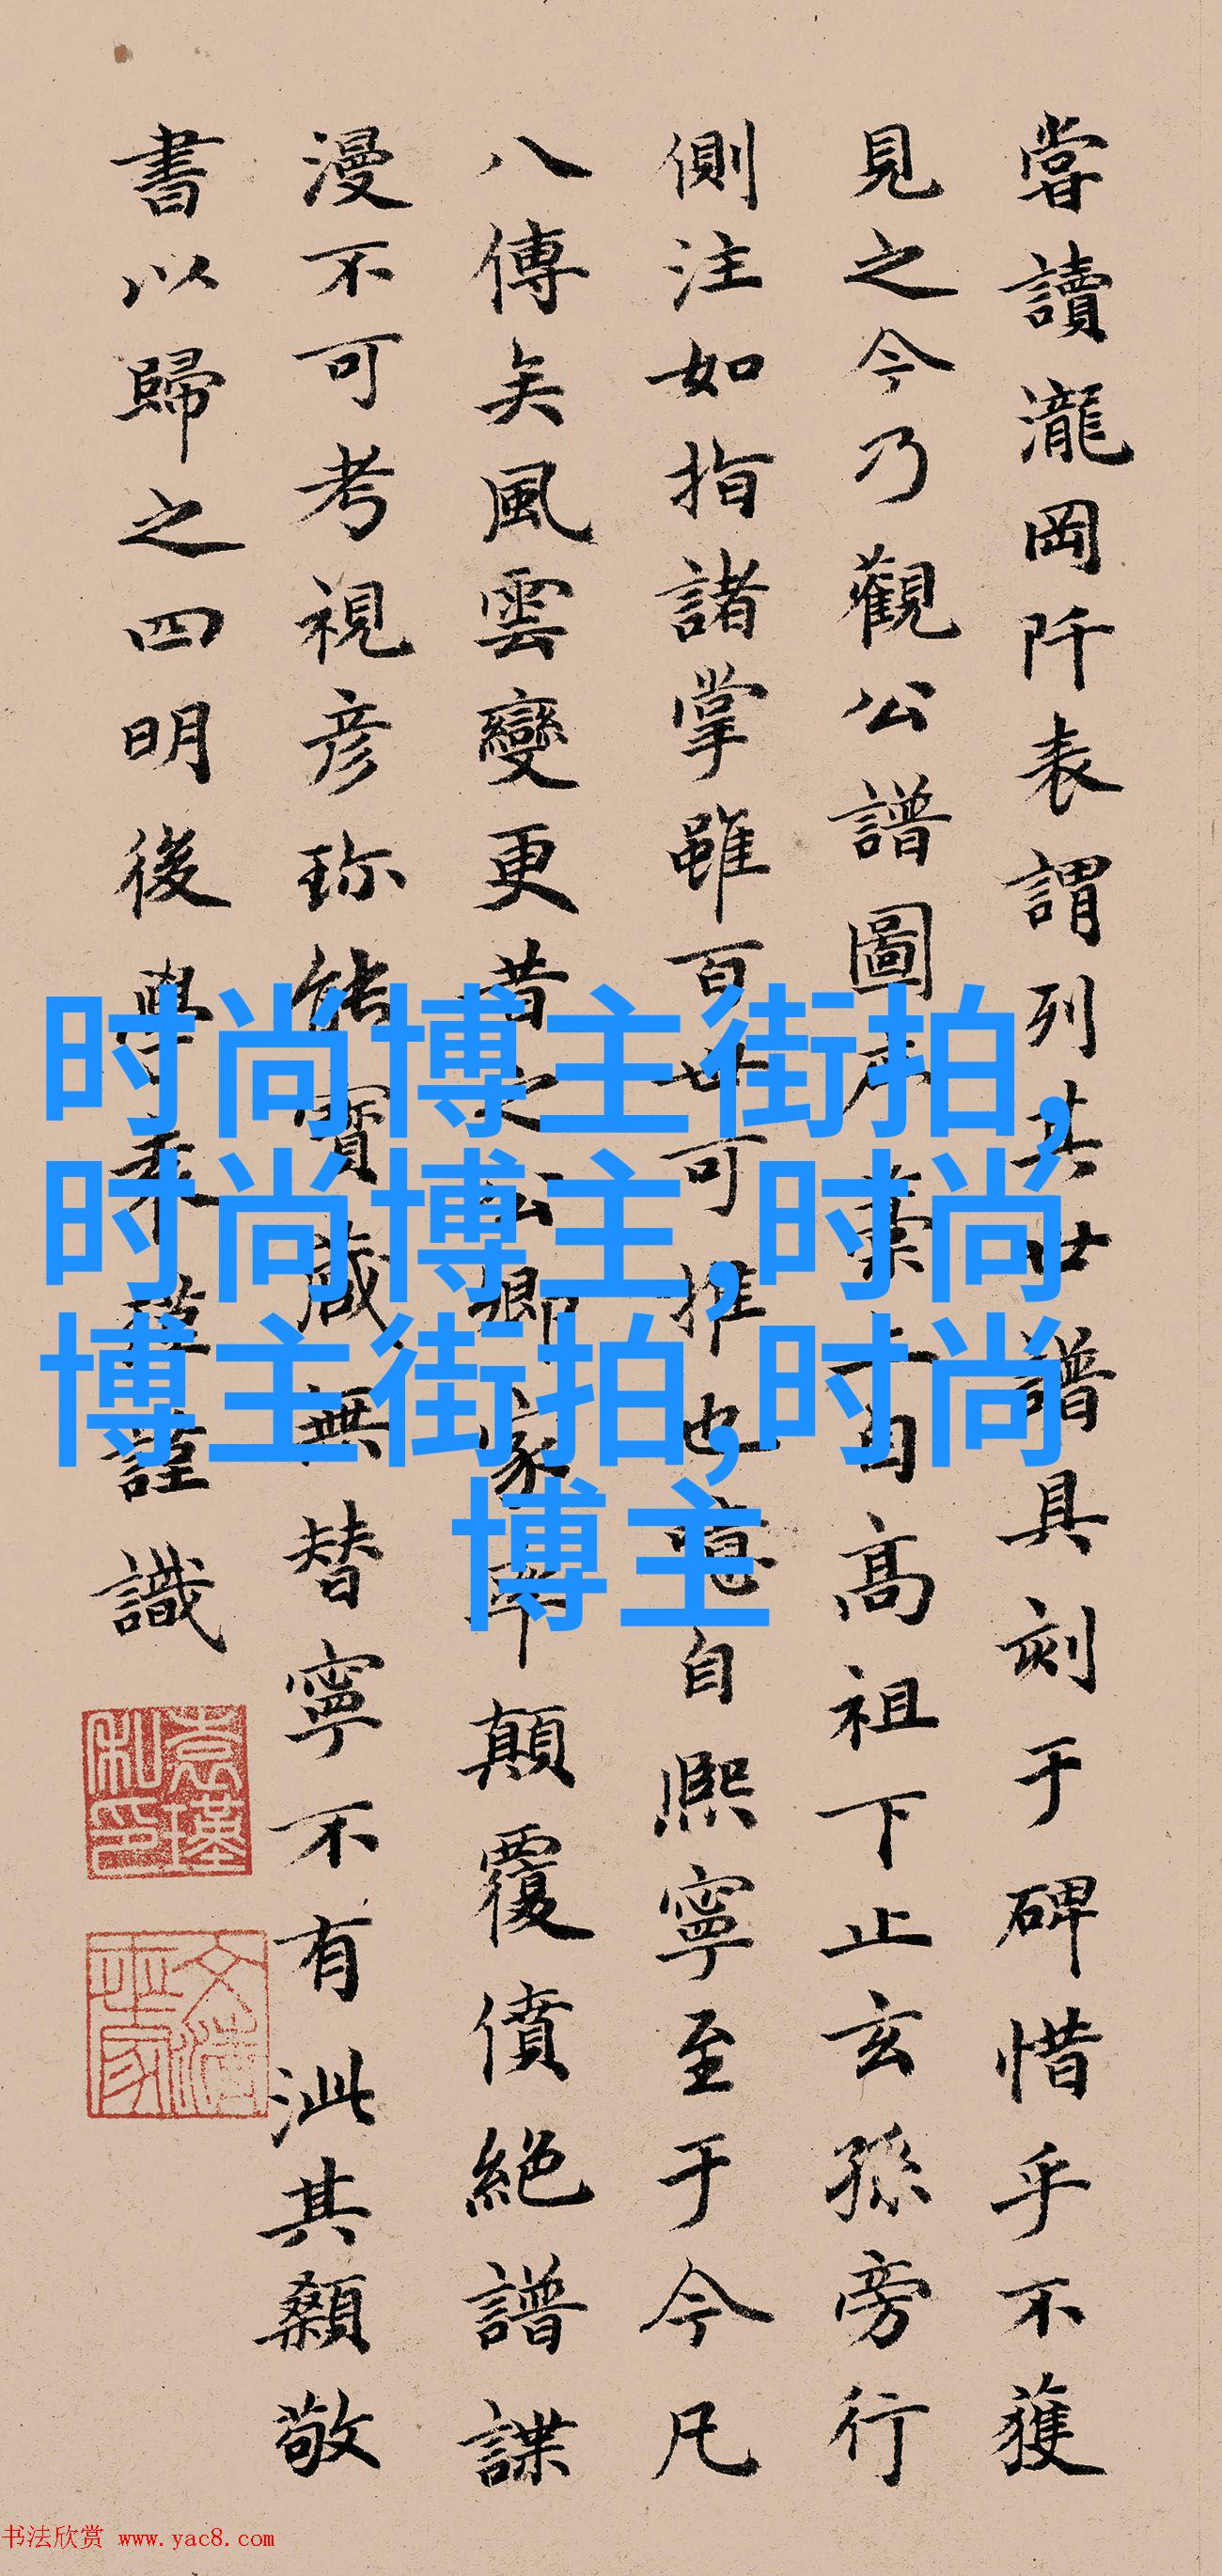 嘗讀瀧岡阡表謂列其世譜具刻于碑惜乎不獲
見之今乃觀公譜圖序稾上自高祖下止玄孫旁行
側注如指諸掌雖百世可推也自熙寧至于今凡
八傳矣風雲變更昔之公卿家耶顛覆僨絕譜諜
漫不可考視彥珎能寶藏無替寧不有泚其顙敬
書以歸之四明後學謹識
时尚博主街拍,
时尚博主,时尚
博主街拍,时尚
博主
书法欣赏 www.yac8.com